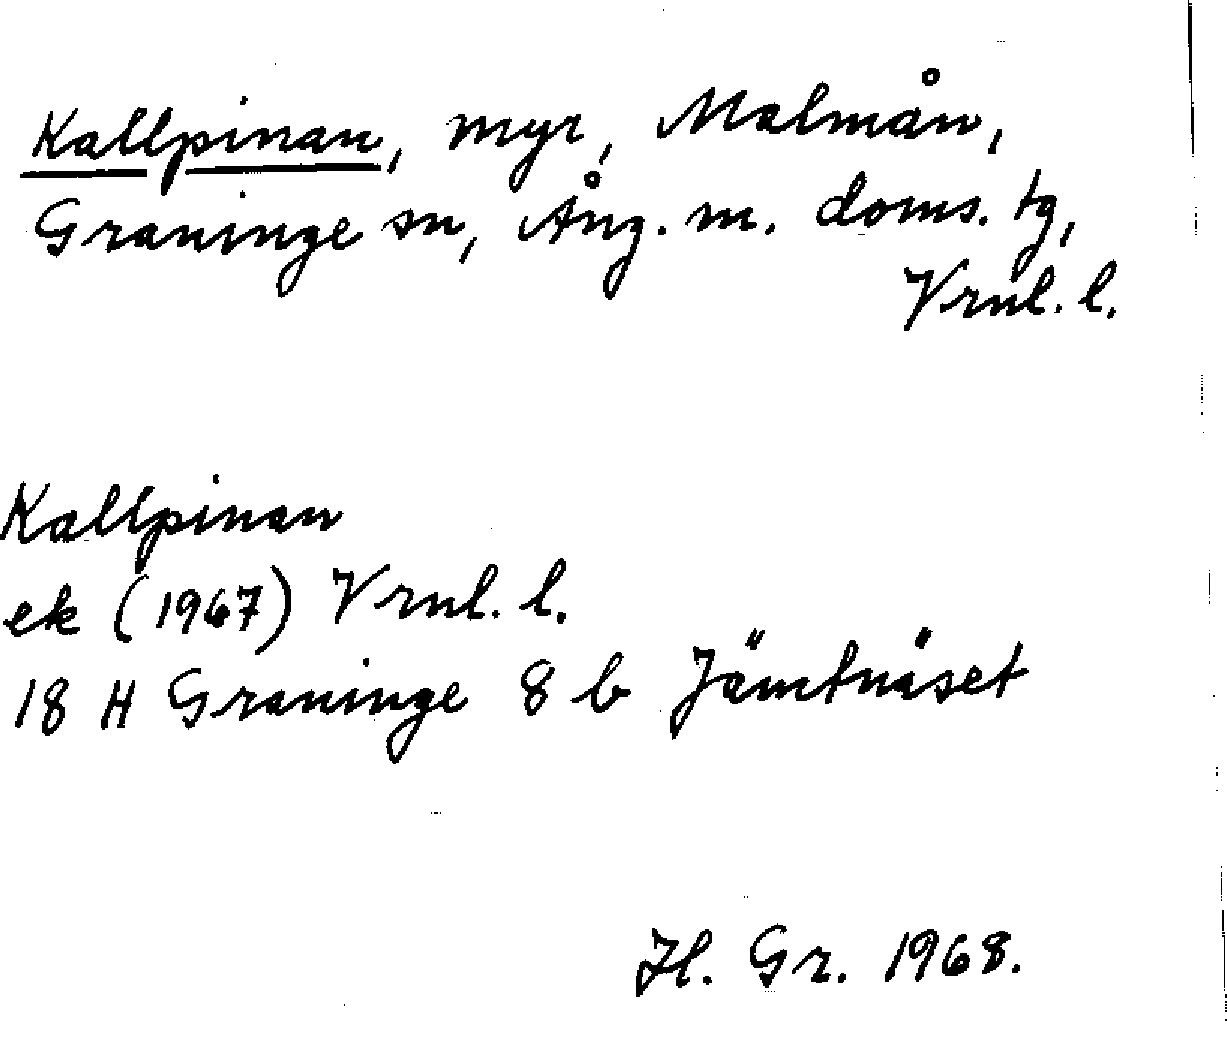 Kallpinan, myr, Malmån,
Graninge sn, Ång. m. doms. tg,
Vrnl. l.
Kallpinan
ek (1967) Vrnl. l.
18 H Graninge 8 b Jämtnäset
Gr. 1968.